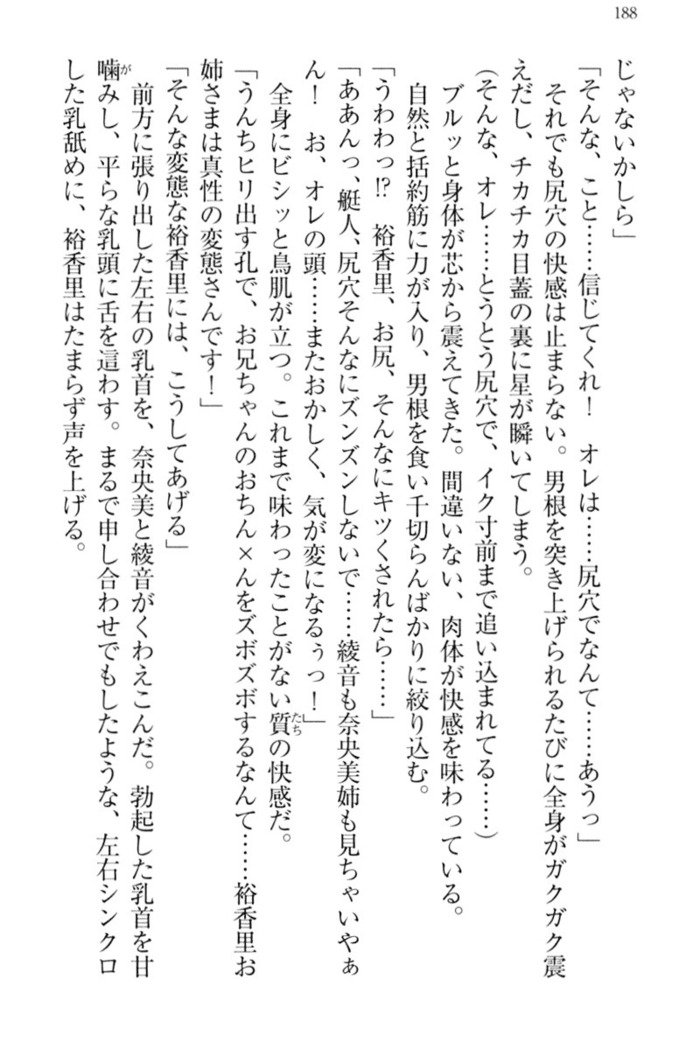 188
じゃないかしら」
「そんな、こと……信じてくれ！　オレは……尻穴でなんて……あうっ」
　それでも尻穴の快感は止まらない。男根を突き上げられるたびに全身がガクガク震
えだし、チカチカ目蓋の裏に星が瞬いてしまう。
（そんな、オレ……とうとう尻穴で、イク寸前まで追い込まれてる……）
　ブルッと身体が芯から震えてきた。間違いない、肉体が快感を味わっている。
　自然と括約筋に力が入り、男根を食い千切らんばかりに絞り込む。
「うわわっ!?　裕香里、お尻、そんなにキツくされたら……」
「ああんっ、艇人、尻穴そんなにズンズンしないで……綾音も奈央美姉も見ちゃいやぁ
ん！　お、オレの頭……またおかしく、気が変になるぅっ！」
　全身にビシッと鳥肌が立つ。これまで味わったことがない質たちの快感だ。
「うんちヒリ出す孔で、お兄ちゃんのおちん×んをズボズボするなんて……裕香里お
姉さまは真性の変態さんです！」
「そんな変態な裕香里には、こうしてあげる」
　前方に張り出した左右の乳首を、奈央美と綾音がくわえこんだ。勃起した乳首を甘
噛がみし、平らな乳頭に舌を這わす。まるで申し合わせでもしたような、左右シンクロ
した乳舐めに、裕香里はたまらず声を上げる。